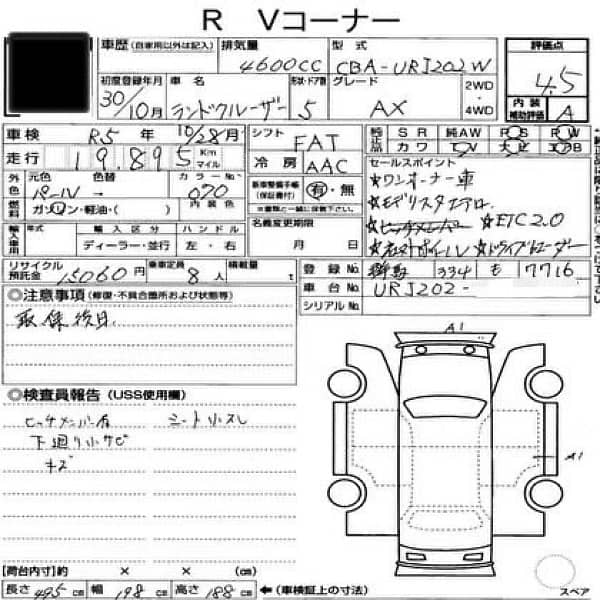 R Vコーナー
車歴 (自家用以外は記入) 排気量 4600CC 型式 CBA-URJ202W 評価点 4.5
初度登録年月 30/10月 車名 ランドクルーザー 形状・ドア数 5 グレード AX 2WD・4WD 内装補助評価 A
車検 R5年 10/28月 シフト FAT 純正品 SR 純AW PS PW
走行 19,895 Km マイル 冷房 AAC カワ TV ナビ エアB
外色 元色 パール 色替 カラーNo. 070 新車整備手帳(保証書付) 有・無
燃料 ガソリン・軽油・( ) 内装色
輸入車用 年式 輸入区分 ディーラー・並行 ハンドル 左・右 名義変更期限 月 日
セールスポイント
★ワンオーナー車
★モデリスタエアロ
★ヒッチメンバー ★ETC2.0
★ドライブレコーダー
リサイクル預託金 15060円 乗車定員 8人 積載量 t 登録No. 334 も 7716
車台No. URJ202-
シリアルNo.
◎注意事項 (修復・不具合箇所および状態等)
取保後日
◎検査員報告 (USS使用欄)
ヒッチメンバー有 シート小スレ
下廻り小サビ
キズ
A1
A1
スペア
【荷台内寸】約 × × (cm)
長さ 495cm 幅 198cm 高さ 188cm ←(車検証上の寸法)